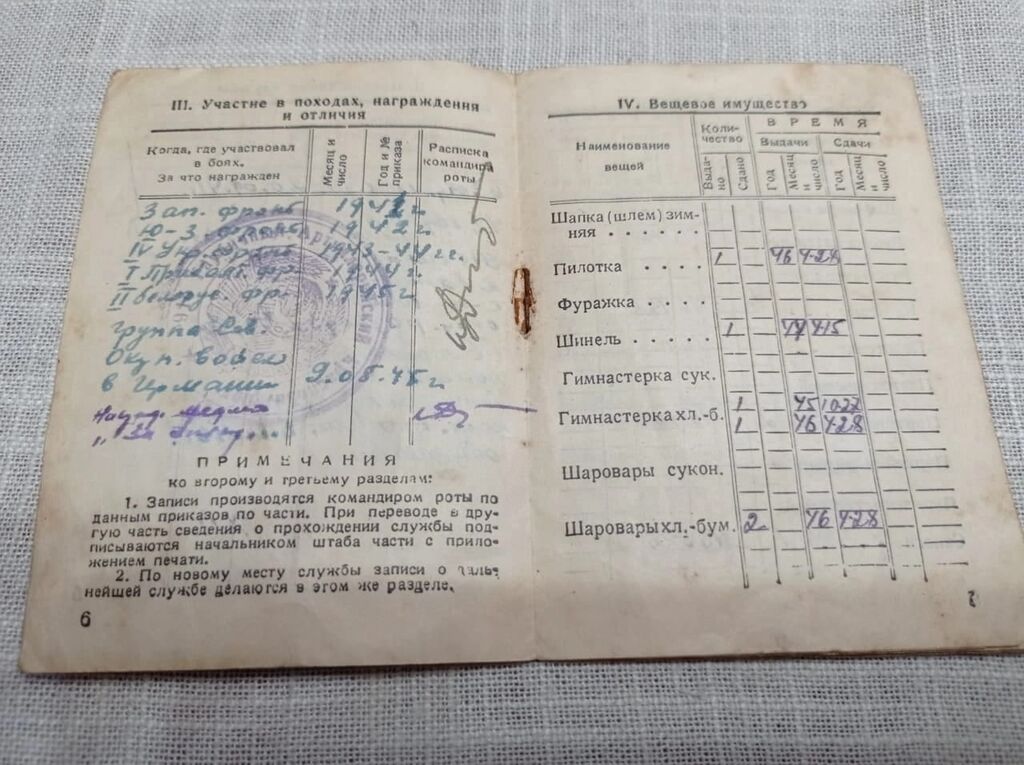 III. Участие в походах, награждения
и отличия
Когда, где участвовал
в боях.
За что награжден
Месяц и
число
Год и №
приказа
Расписка
командира
роты
Зап. фронт 1942 г.
Ю-З. фронт 1942 г.
IV Укр. фронт 1943-44 гг.
I Прибалт. фр. 1944 г.
II Белорус. фр. 1945 г.
группа Сов.
Окуп. войск
в Германии 9.05.45 г.
Награ. медаль
„За
ПРИМЕЧАНИЯ
ко второму и третьему разделам:
1. Записи производятся командиром роты по
данным приказов по части. При переводе в дру-
гую часть сведения о прохождении службы под-
писываются начальником штаба части с прило-
жением печати.
2. По новому месту службы записи о даль-
нейшей службе делаются в этом же разделе.
6
IV. Вещевое имущество
Наименование
вещей
Коли-
чество
ВРЕМЯ
Выдачи
Сдачи
Выда-
но
Сдано
Год
Месяц
и
число
Год
Месяц
и
число
Шапка (шлем) зим-
няя . . . . . .
Пилотка . . . . 1 46 4-28
Фуражка . . . .
Шинель . . . . 1 44 4-15
Гимнастерка сук.
Гимнастерка хл.-б. 1 45 10-27
1 46 4-28
Шаровары сукон.
Шаровары хл.-бум. 2 46 4-28